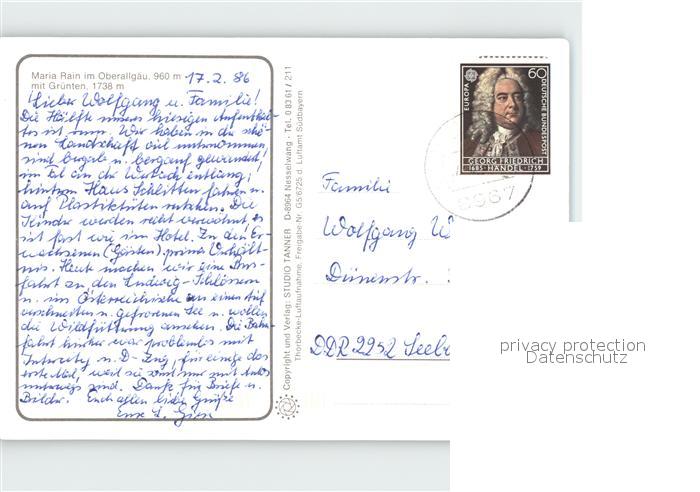 Maria Rain im Oberallgäu, 960 m
mit Grünten, 1738 m
17.2.86
Lieber Wolfgang u. Familie!
Die Hälfte unseres hiesigen Aufenthal-
tes ist rum. Wir haben in der schö-
nen Landschaft viel unternommen,
sind bergab u. bergauf gewandert,
im Tal an der Wertach entlang;
hinterm Haus Schlitten fahren u.
auf Plastiktüten rutschen. Die
Kinder werden recht verwöhnt, es
ist fast wie im Hotel. Zu den Er-
wachsenen (Gästen) prima Verhält-
nis. Heute machen wir eine Bus-
fahrt zu den Ludwig-Schlössern
u. ins Österreichische an einen
verschneiten u. gefrorenen See u. wollen
die Wildfütterung ansehen. Die Bahn-
fahrt hierher war problemlos mit
Intercity u. D-Zug, für einige das
erste Mal, weil sie sonst nur mit Autos
unterwegs sind. Dank für Briefe u.
Bilder. Euch allen liebe Grüße
Eure
Copyright und Verlag: STUDIO TANNER D-8964 Nesselwang · Tel. 0 83 61 / 211
Thorbecke-Luftaufnahme, Freigabe-Nr. G5/6725 d. Luftamt Südbayern
EUROPA
60
DEUTSCHE BUNDESPOST
GEORG FRIEDRICH
1685 HÄNDEL 1759
8967
Familie
Wolfgang
Dünenstr.
DDR 2252 Seeb
privacy protection
Datenschutz